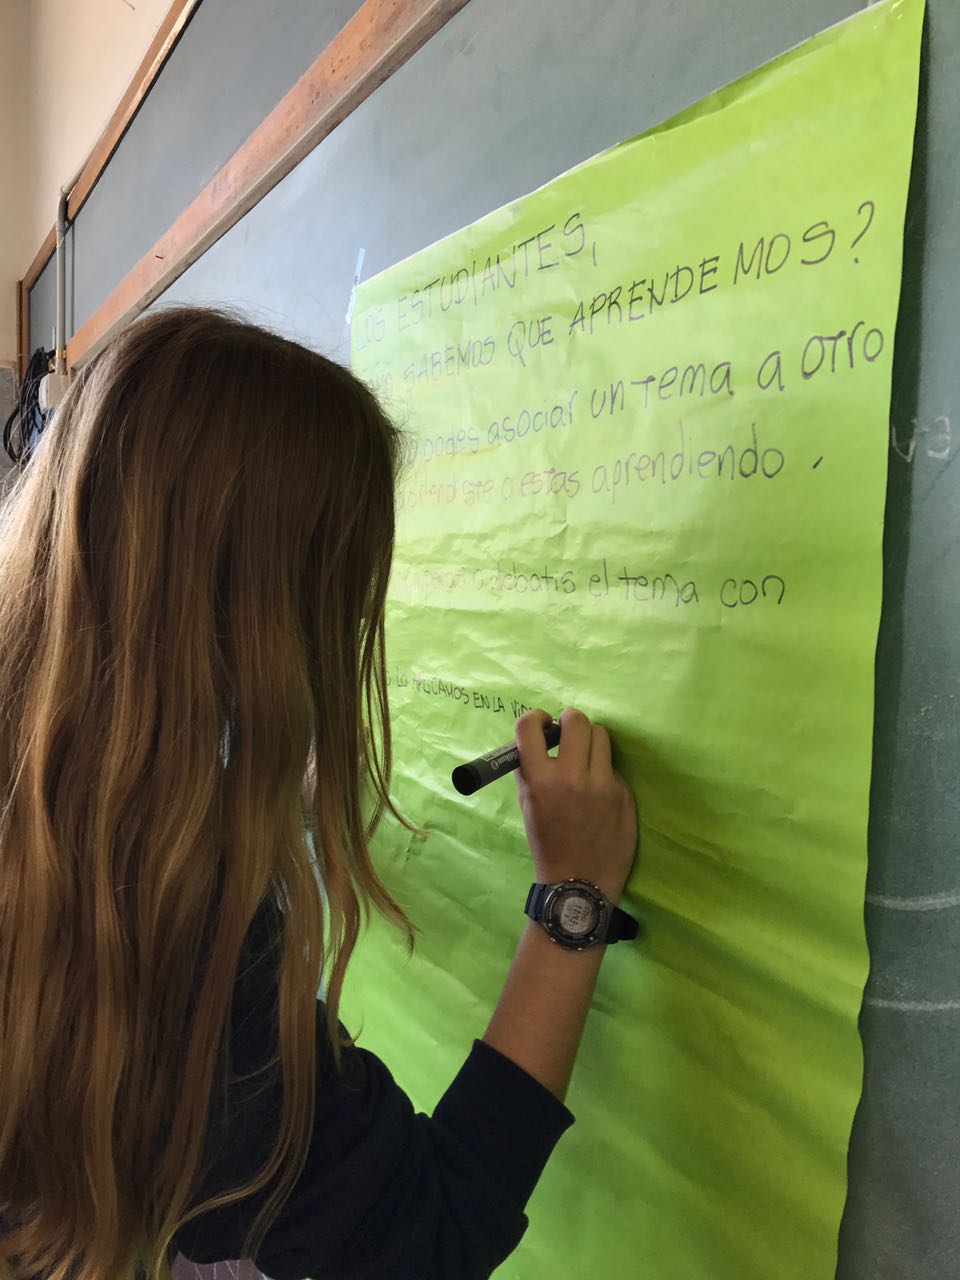 LOS ESTUDIANTES,
SABEMOS QUE APRENDEMOS?
podes asociar un tema a otro
aprendiste o estas aprendiendo.
o debatis el tema con
LO APLICAMOS EN LA VIDA